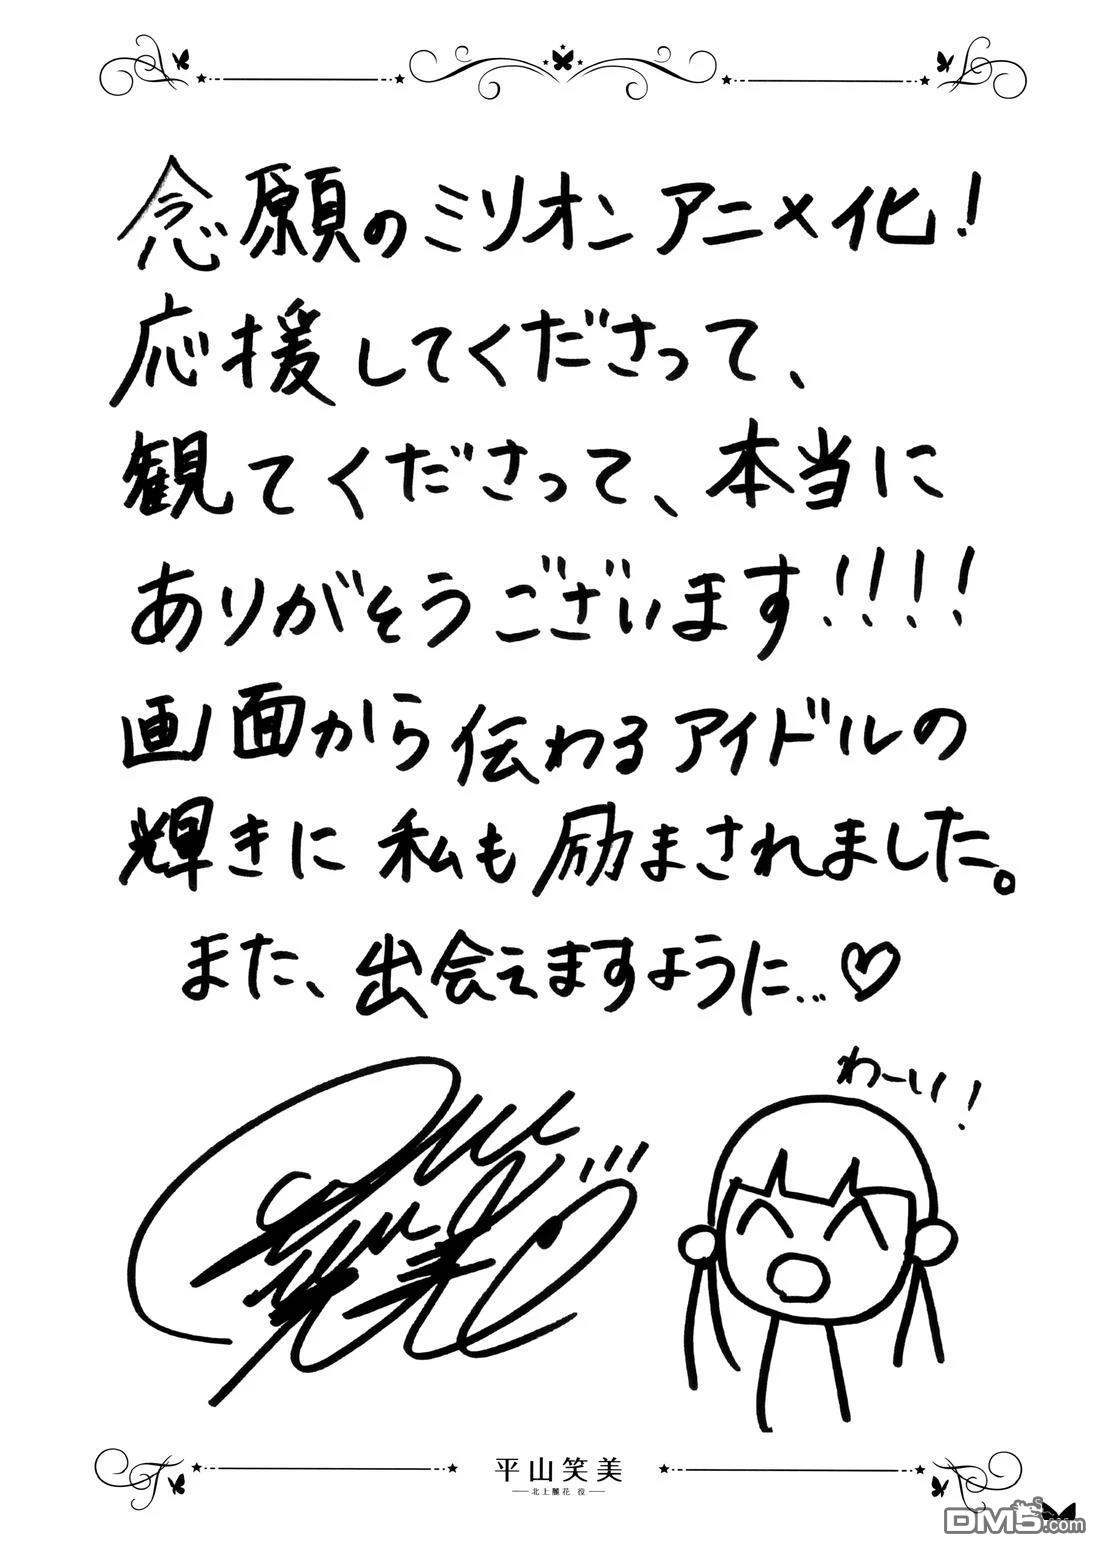 念願のミリオンアニメ化!
応援してくださって、
観てくださって、本当に
ありがそうございます!!!!
画面から伝わるアイドルの
輝きに私も励まされました。
また、出会えますように…♡
わーい!
平山笑美
北上麗花 役
DM5.com